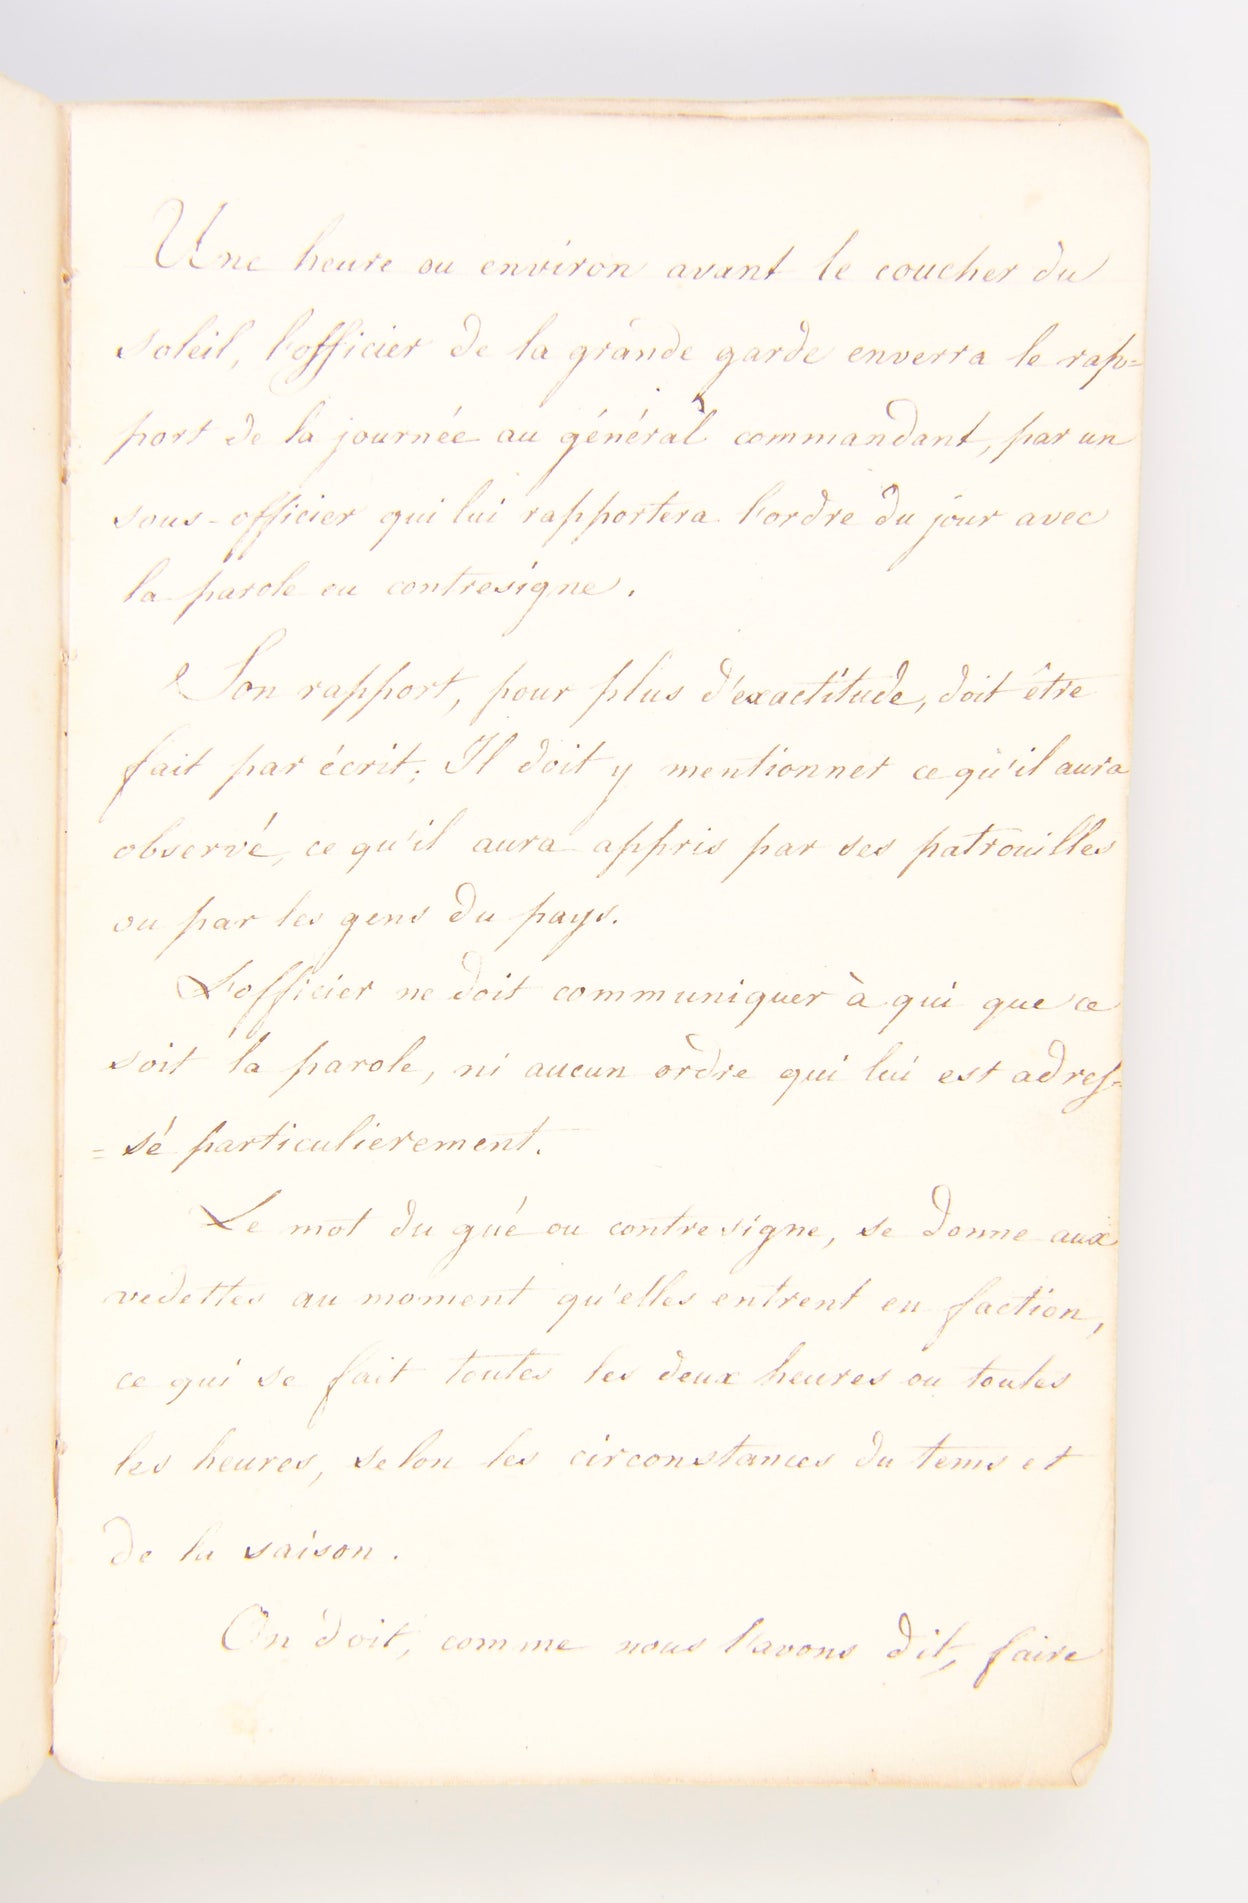 Une heure ou environ avant le coucher du
soleil, l'officier de la grande garde enverra le rap=
port de la journée au général commandant, par un
sous-officier qui lui rapportera l'ordre du jour avec
la parole ou contresigne.
Son rapport, pour plus d'exactitude, doit être
fait par écrit; Il doit y mentionner ce qu'il aura
observé, ce qu'il aura appris par ses patrouilles
ou par les gens du pays.
L'officier ne doit communiquer à qui que ce
soit la parole, ni aucun ordre qui lui est adres=
=sé particulierement.
Le mot du gué ou contresigne, se donne aux
vedettes au moment qu'elles entrent en faction,
ce qui se fait toutes les deux heures ou toutes
les heures, selon les circonstances du tems et
de la saison.
On doit, comme nous l'avons dit, faire